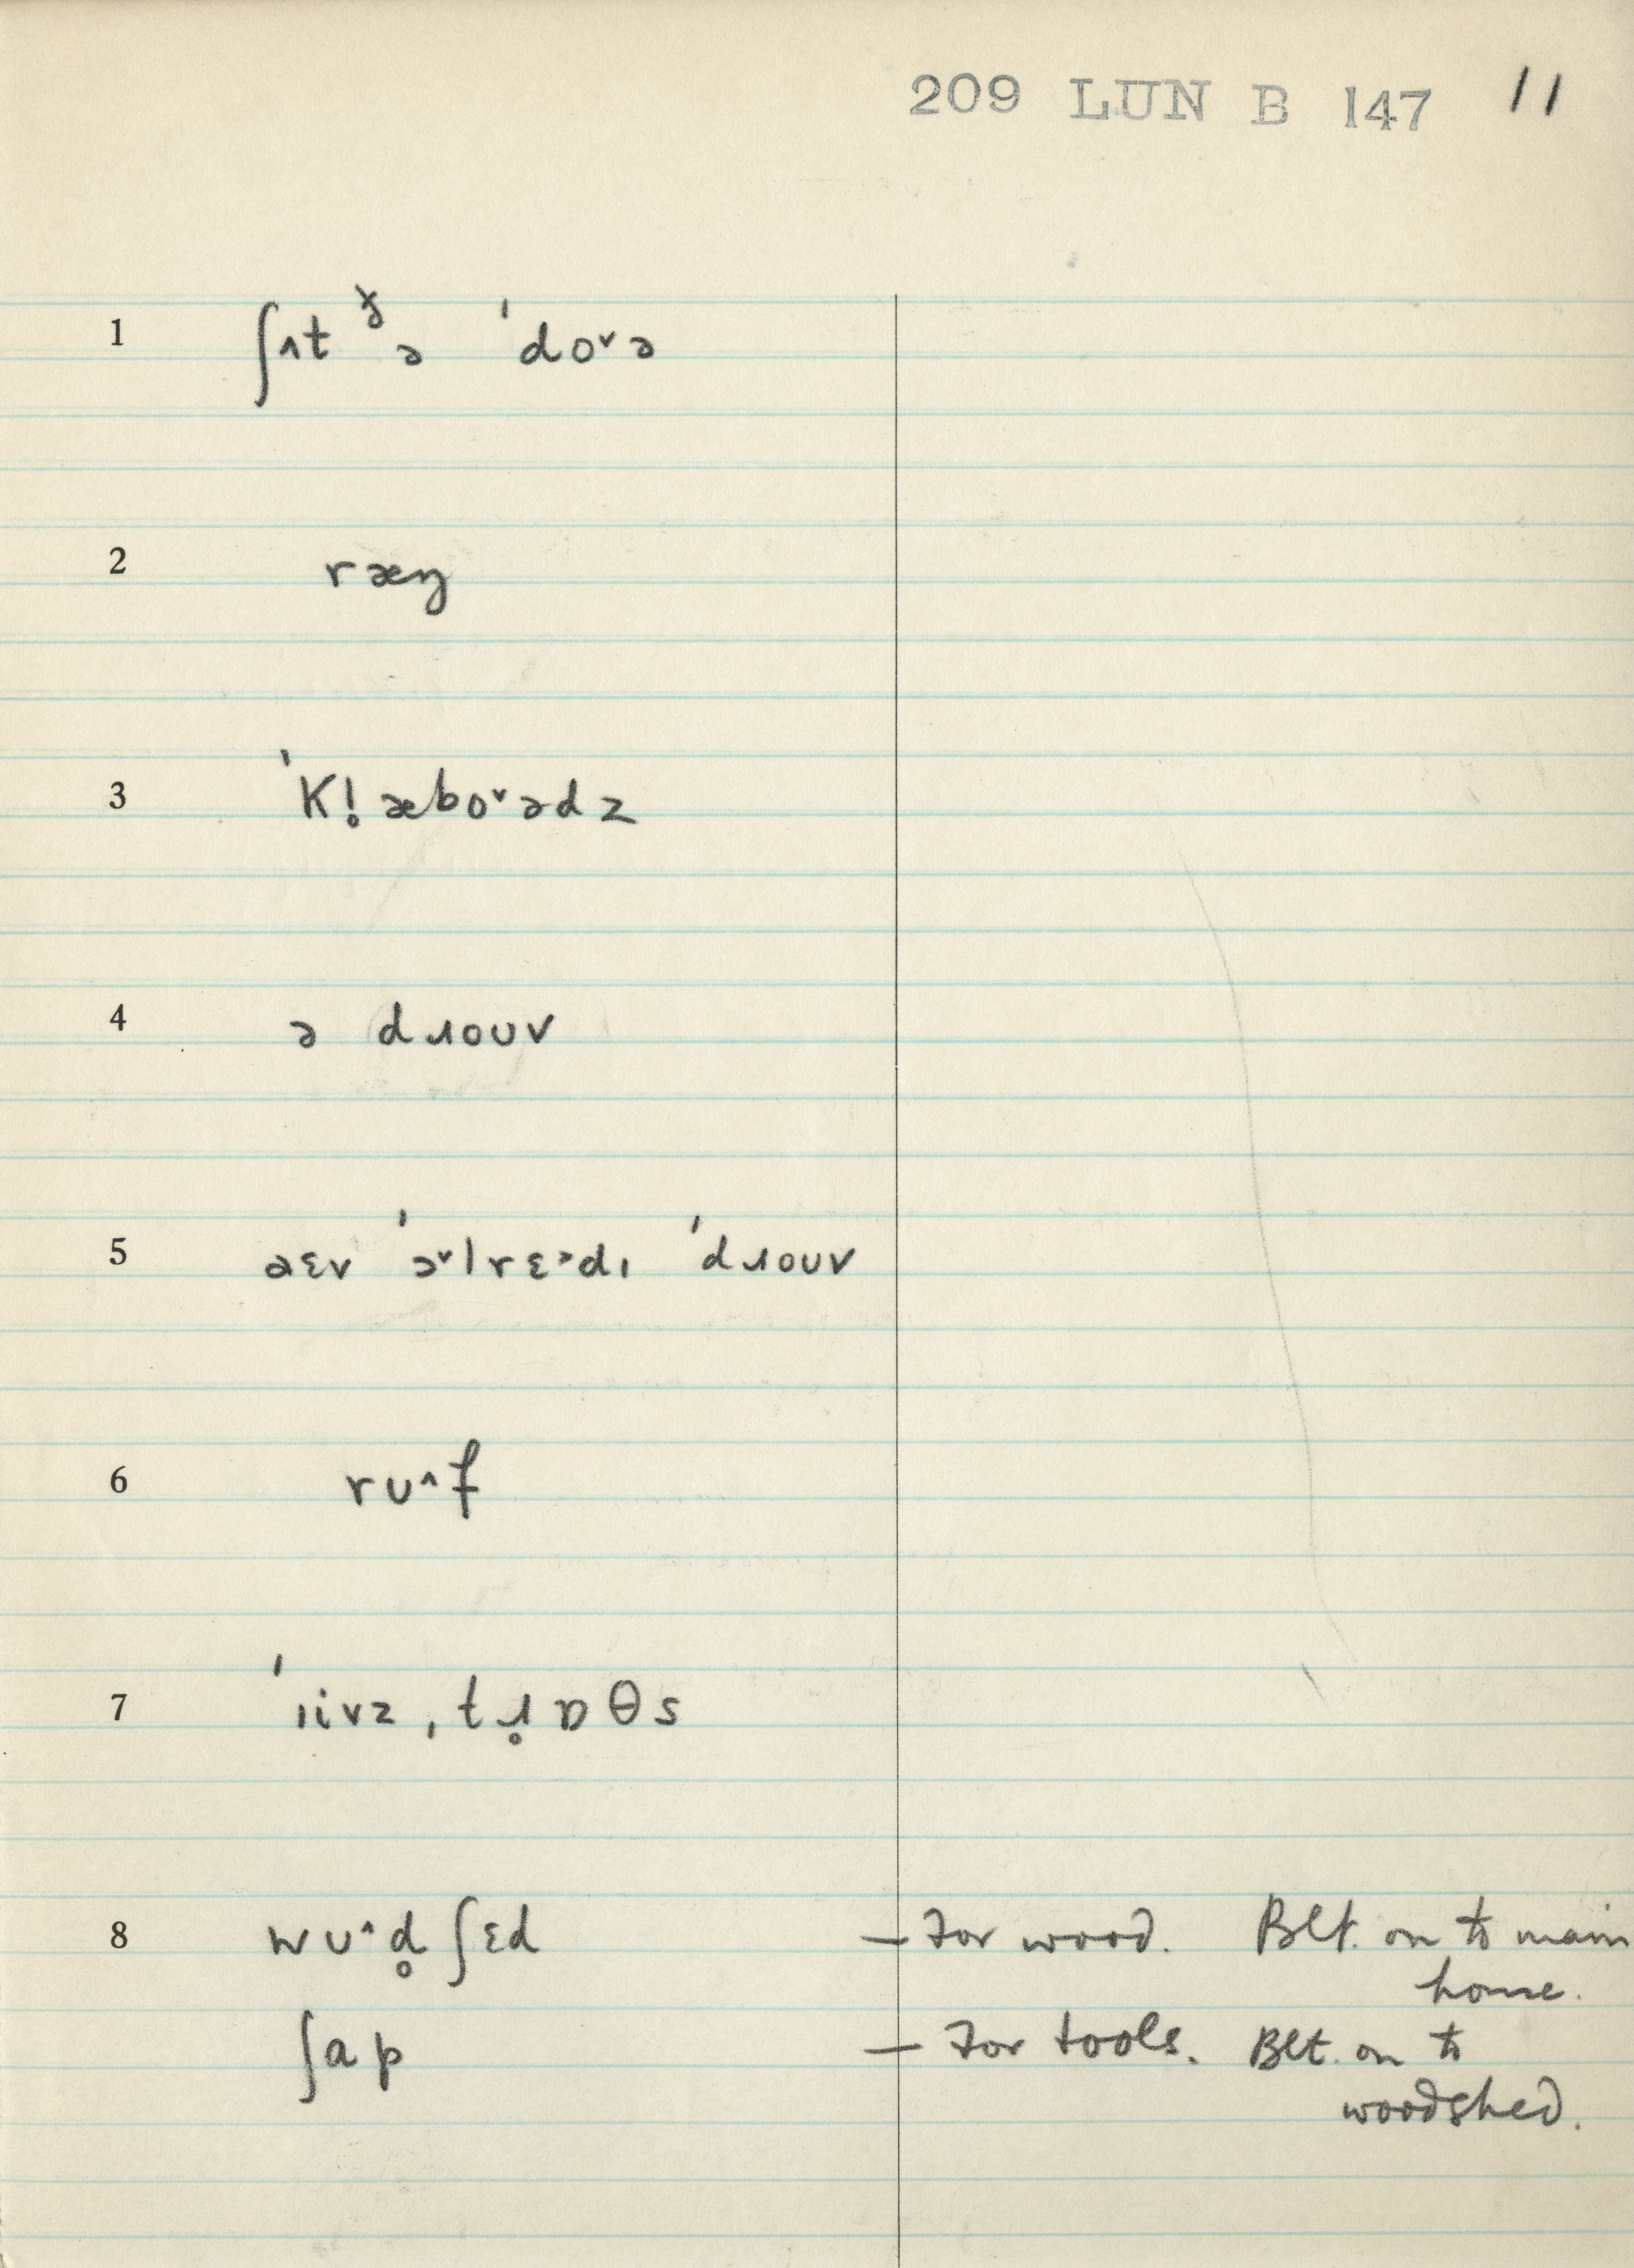 209 LUN B 147 11
1 ʃʌt ðə ˈdo˅ə
2 ræŋ
3 ˈKl̥æbo˅ədz
4 ə dɹouv
5 əɛv ˈɔ˅lrɛ˃dɪ ˈdɹouv
6 rʊ^f
7 ˈiivz, tɹ̥ɒθs
8 wʊ^d̥ ʃɛd — For wood. Blt. on to main
house.
ʃap — For tools. Blt. on to
woodshed.